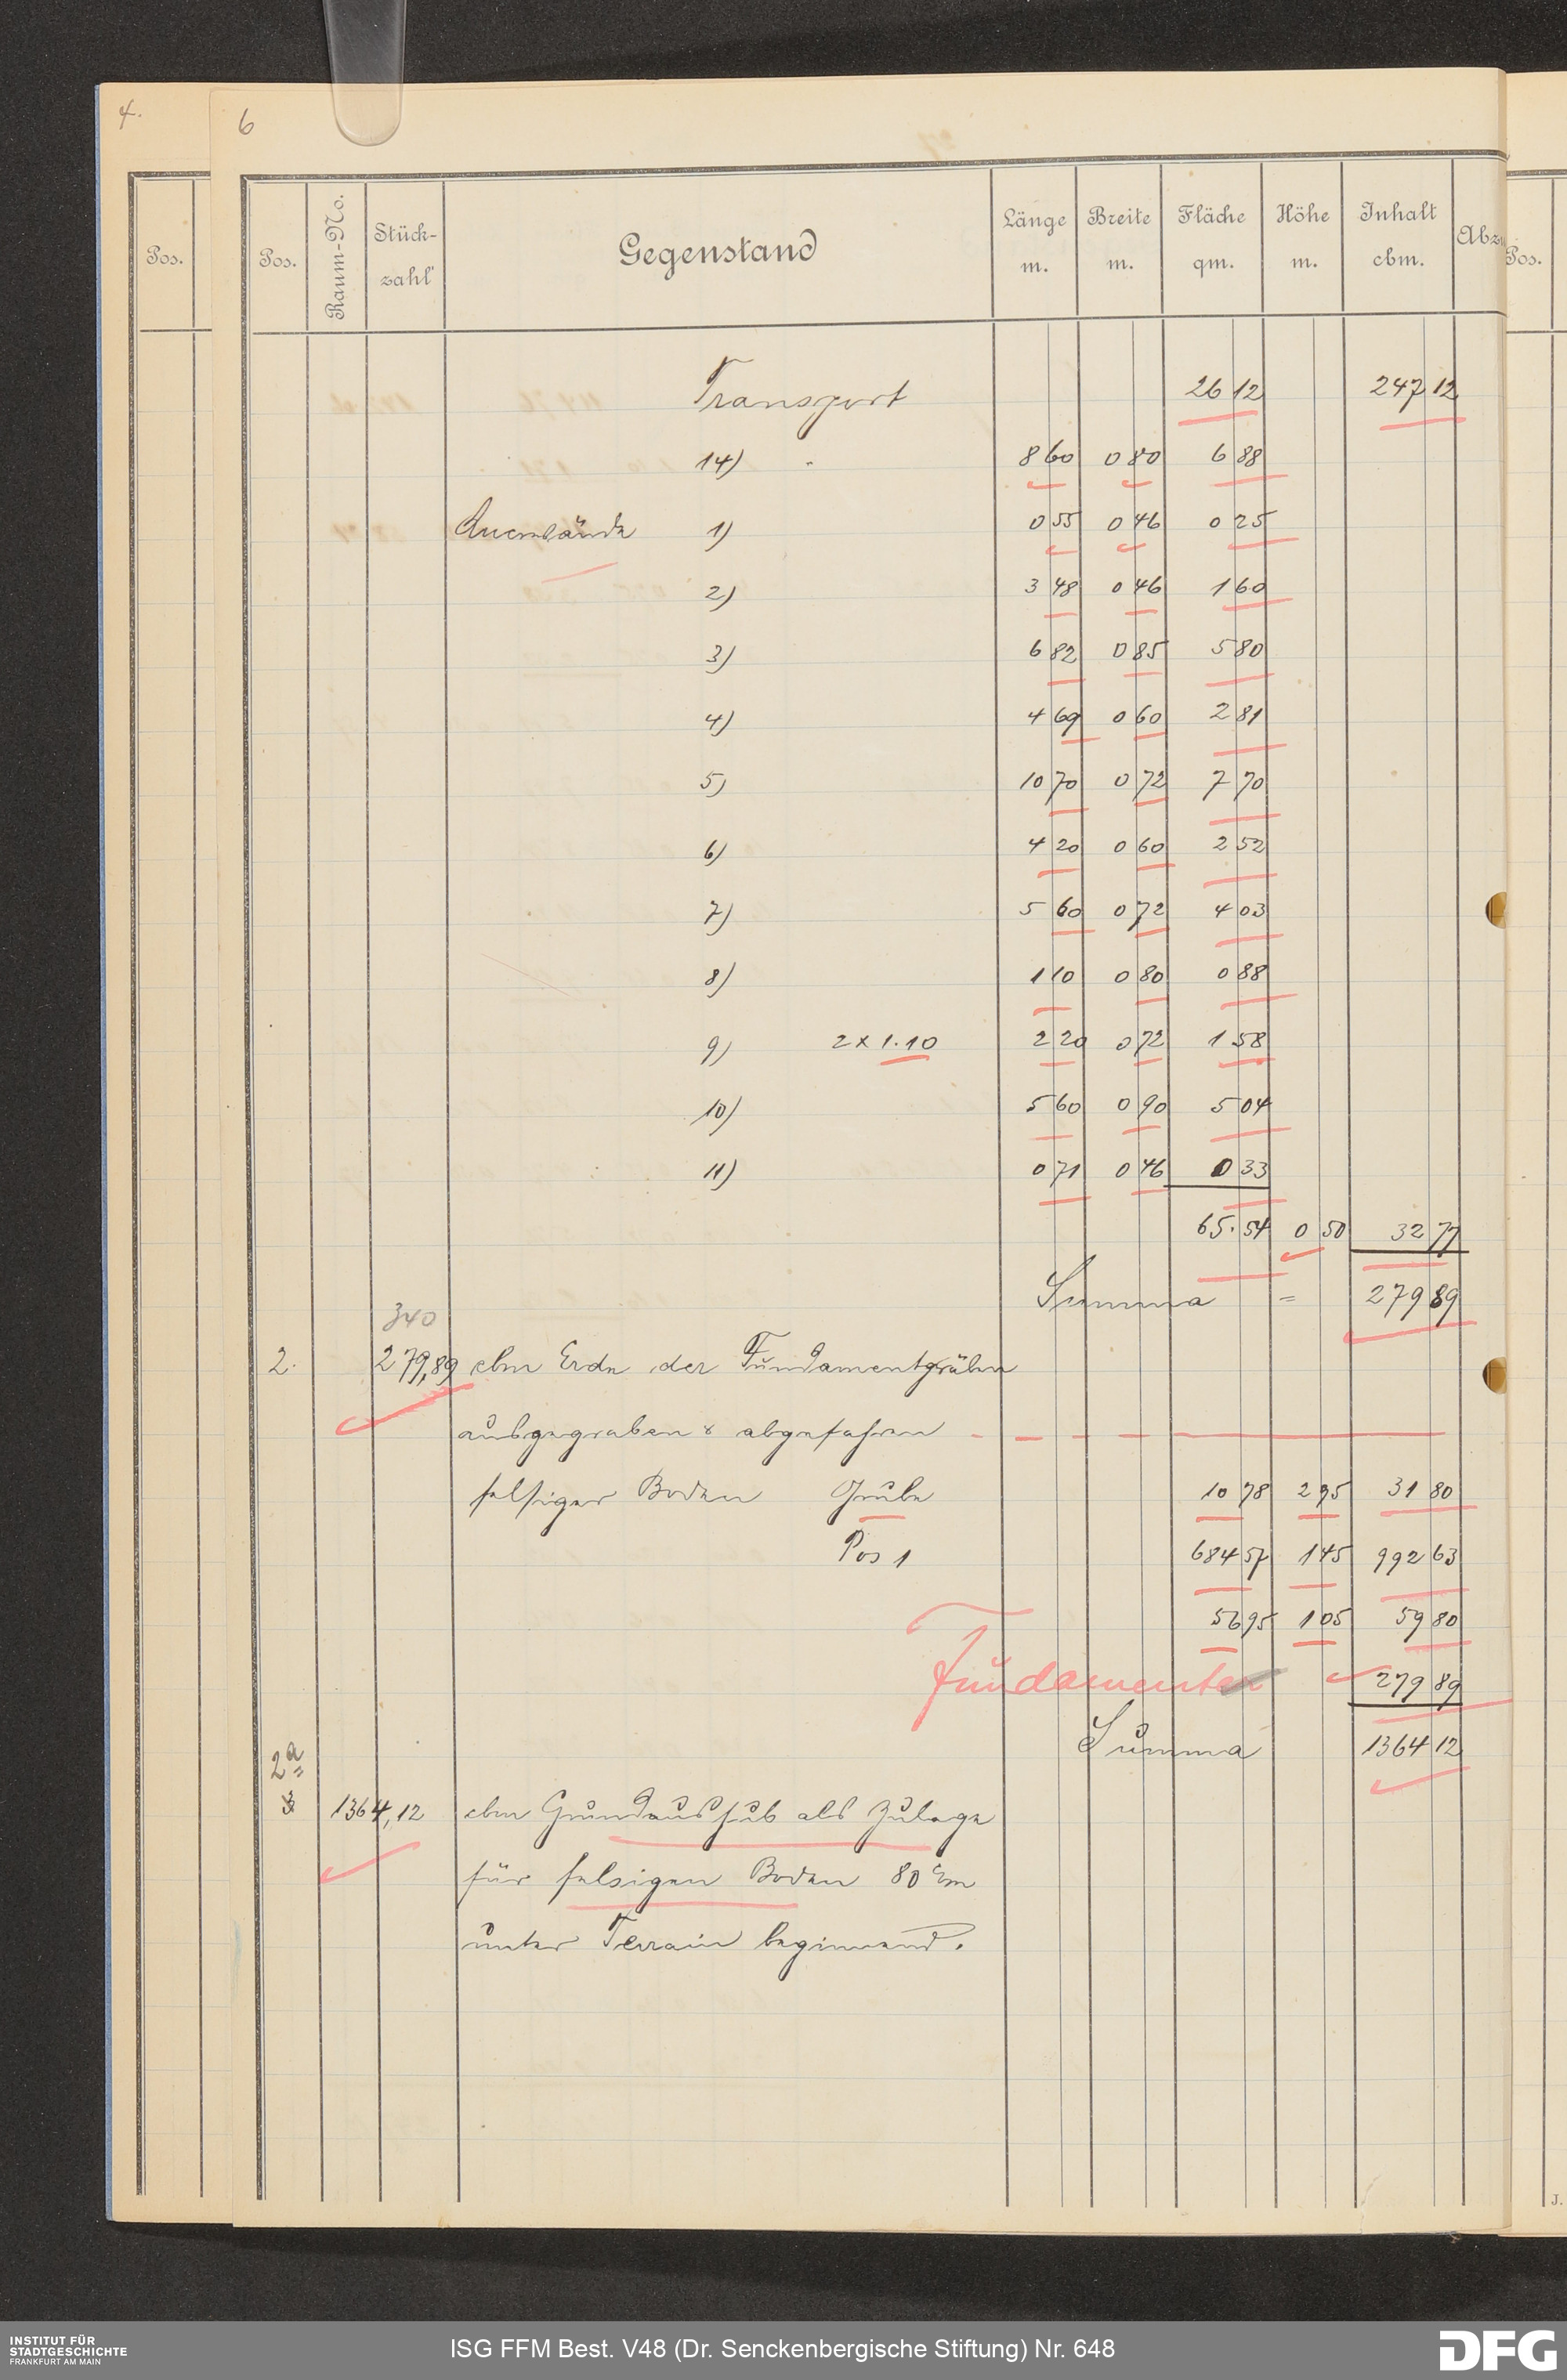 4.
6
Pos.
Pos. Raum-No. Stück-zahl Gegenstand Länge m. Breite m. Fläche qm. Höhe m. Inhalt cbm. Abz
Pos.
Transport 26 12 247 12
14) " 8 60 0 80 6 88
Querwände 1) 0 55 0 46 0 25
2) 3 48 0 46 1 60
3) 6 82 0 85 5 80
4) 4 69 0 60 2 81
5) 10 70 0 72 7 70
6) 4 20 0 60 2 52
7) 5 60 0 72 4 03
8) 1 10 0 80 0 88
9) 2 x 1.10 2 20 0 72 1 58
10) 5 60 0 90 5 04
11) 0 71 0 46 0 33
65. 54 0 50 32 77
Summa = 279 89
340
2. 279,89 cbm Erde der Fundamentgräben
ausgegraben & abgefahren
felsiger Boden Grube 10 78 2 95 31 80
Pos 1 684 57 1 45 992 63
56 95 1 05 59 80
Fundamenten 279 89
Summa 1364 12
2a
3 1364,12 cbm Grundaushub als Zulage
für felsigen Boden 80 cm
unter Terrain beginnend.
J.
INSTITUT FÜR
STADTGESCHICHTE
FRANKFURT AM MAIN
ISG FFM Best. V48 (Dr. Senckenbergische Stiftung) Nr. 648
DFG